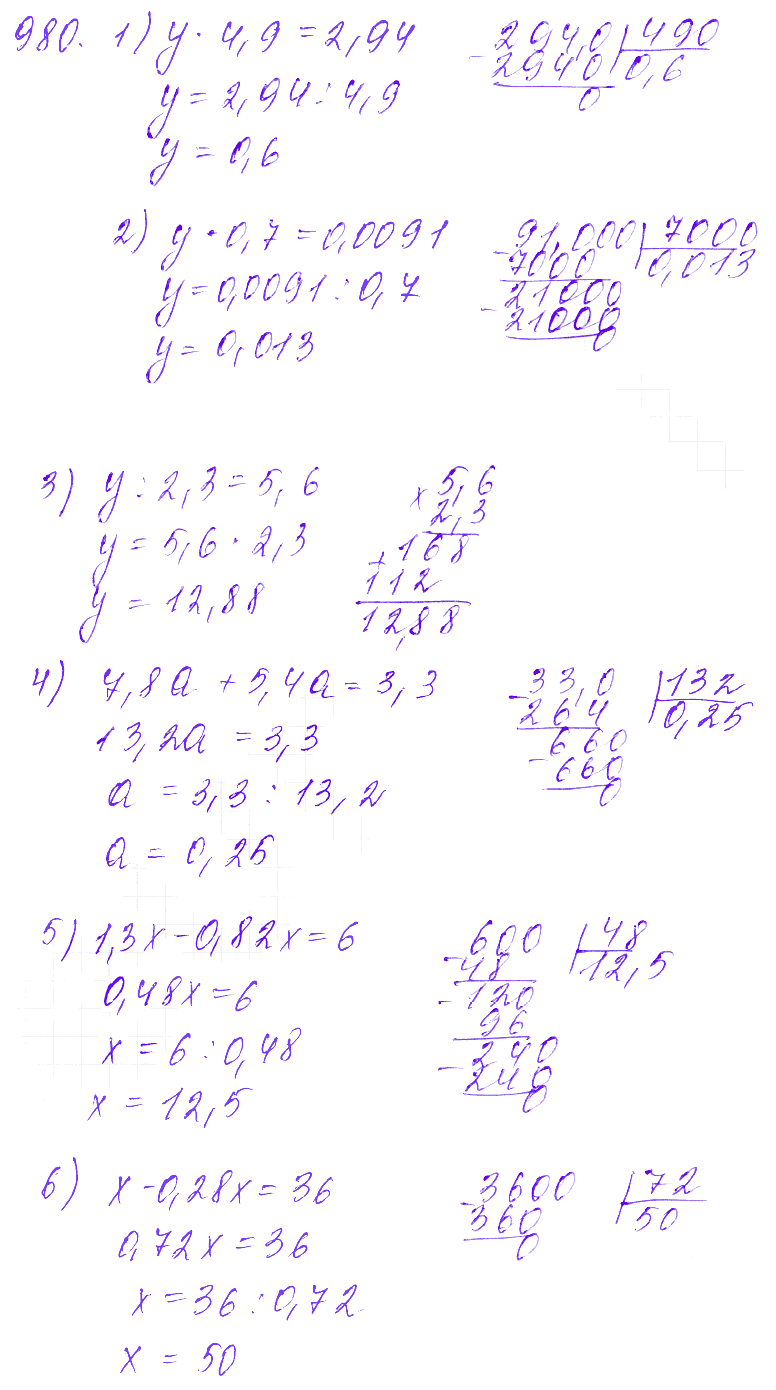 980. 1) y · 4,9 = 2,94
y = 2,94 : 4,9
y = 0,6
294,0 490
- 2940 0,6
0
2) y · 0,7 = 0,0091
y = 0,0091 : 0,7
y = 0,013
91,000 7000
- 7000 0,013
21000
- 21000
0
3) y : 2,3 = 5,6
y = 5,6 · 2,3
y = 12,88
5,6
× 2,3
168
+ 112
12,88
4) 7,8a + 5,4a = 3,3
13,2a = 3,3
a = 3,3 : 13,2
a = 0,25
33,0 132
- 264 0,25
660
- 660
0
5) 1,3x - 0,82x = 6
0,48x = 6
x = 6 : 0,48
x = 12,5
600 48
- 48 12,5
120
- 96
240
- 240
0
6) x - 0,28x = 36
0,72x = 36
x = 36 : 0,72
x = 50
3600 72
- 360 50
0